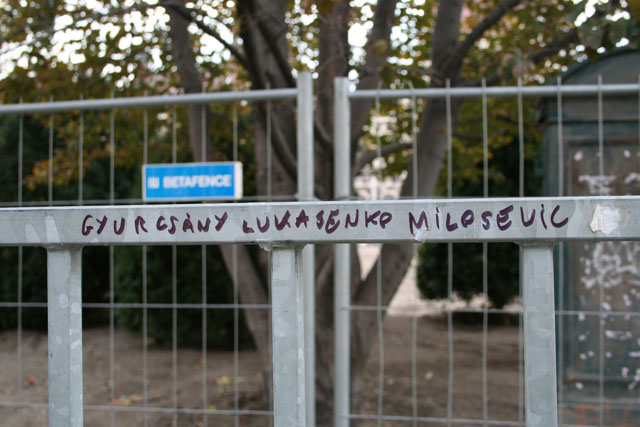 BETAFENCE
GYURCSÁNY LUKASENKO MILOSEVIC